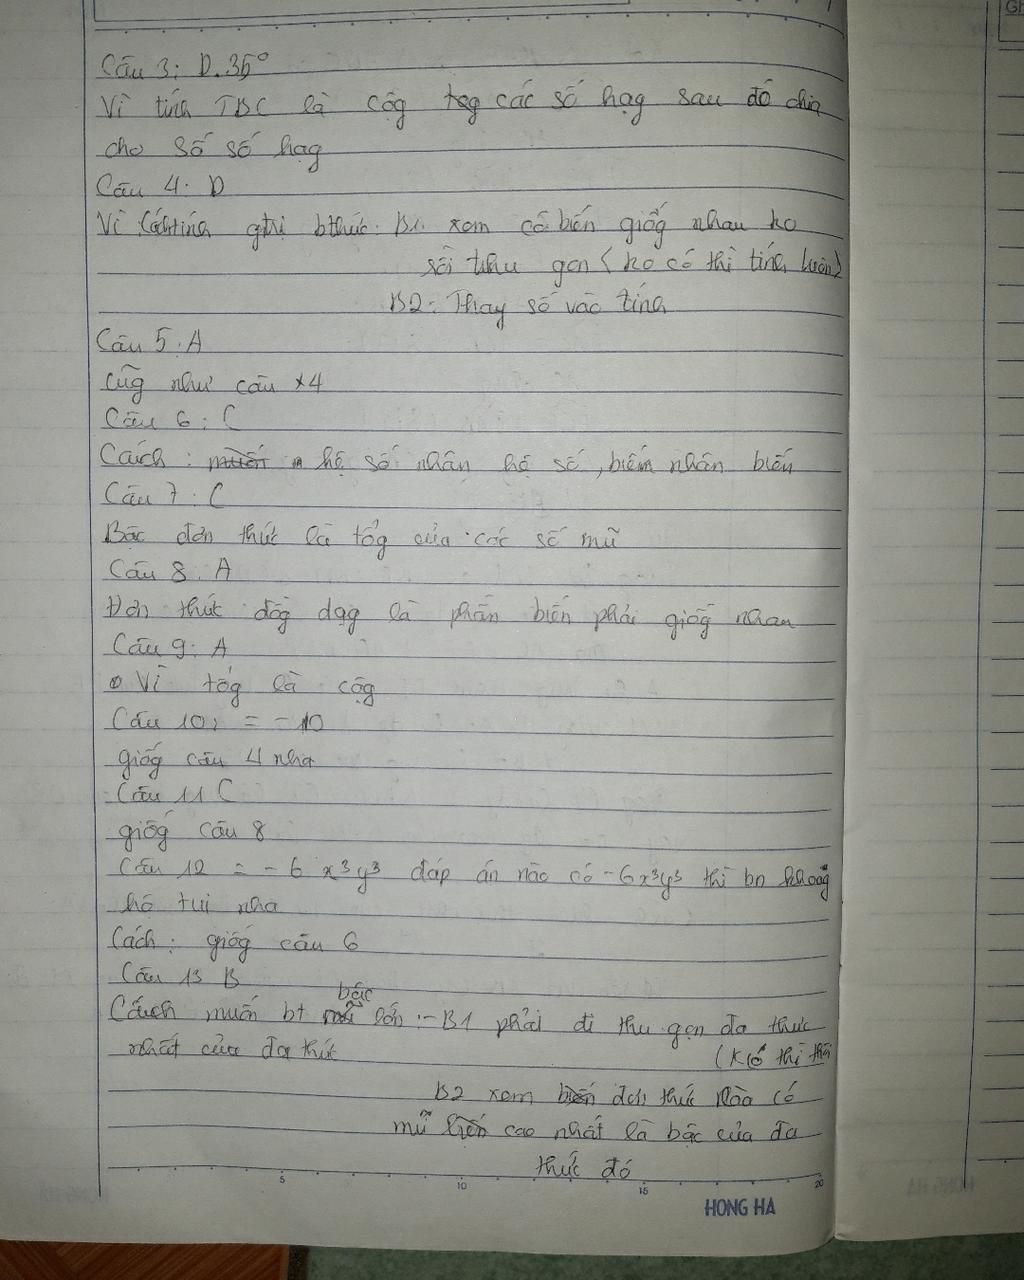 Câu 3: D. 35°
Vì tính TBC là cộg tog các số hạg sau đó chia
cho số số hạg
Câu 4. D
Vì Cáchtính gtrị bthức. B1. xem có biến giốg nhau ko
rồi thu gọn (ko có thì tính luôn)
B2: Thay số vào tính
Câu 5. A
cũg như câu 4
Câu 6: C
Cách: hệ số nhân hệ số, biến nhân biến
Câu 7. C
Bậc đơn thức là tổg của các số mũ
Câu 8. A
Đơn thức đồg dạg là phần biến phải giốg nhau
Câu 9: A
Vì tổg là cộg
Câu 10, = -10
giốg câu 4 nha
Câu 11 C
giốg câu 8
Câu 12 = -6 x³y³ đáp án nào có -6x³y³ thì bn khoag
hộ tui nha
Cách: giốg câu 6
Câu 13 B
Cách muốn bt bậc lớn :- B1 phải đi thu gọn đa thức
nhất của đa thức (K có thì thôi
B2 xem đơn thức nào có
mũ cao nhất là bậc của đa
thức đó
5 10 15 20
HONG HA